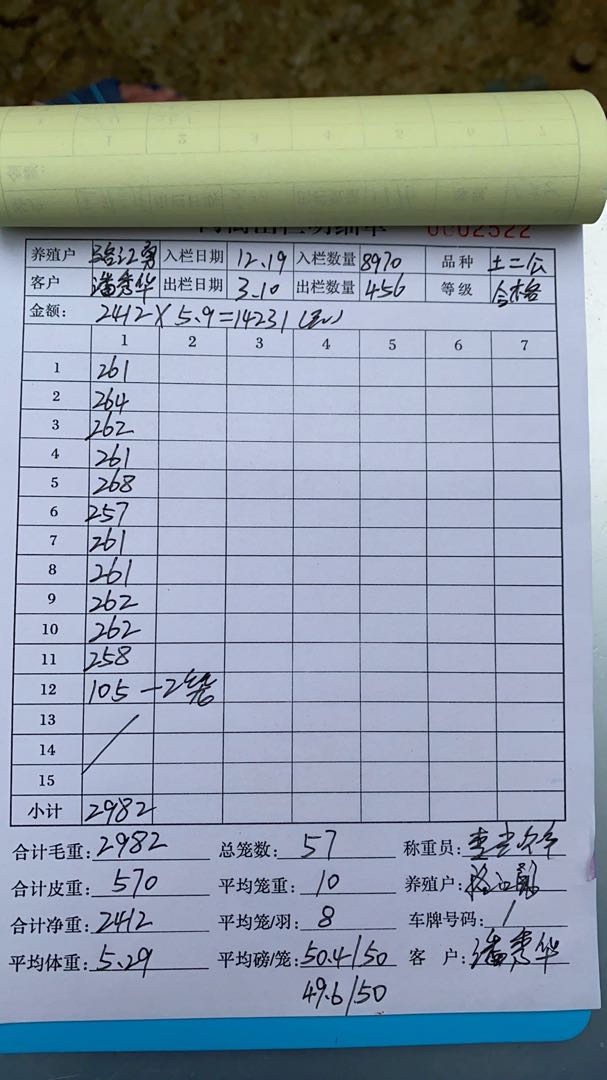 0002522
养殖户 骆江勇 入栏日期 12.19 入栏数量 8970 品种 土二公
客户 潘秀华 出栏日期 3.10 出栏数量 456 等级 合格
金额: 2412×5.9=14231
1 2 3 4 5 6 7
1 261
2 264
3 262
4 261
5 268
6 257
7 261
8 261
9 262
10 262
11 258
12 105 —2笼
13
14
15
小计 2982
合计毛重: 2982 总笼数: 57 称重员:
合计皮重: 570 平均笼重: 10 养殖户: 骆江勇
合计净重: 2412 平均笼/羽: 8 车牌号码: /
平均体重: 5.29 平均磅/笼: 50.4/50 客 户: 潘秀华
49.6/50